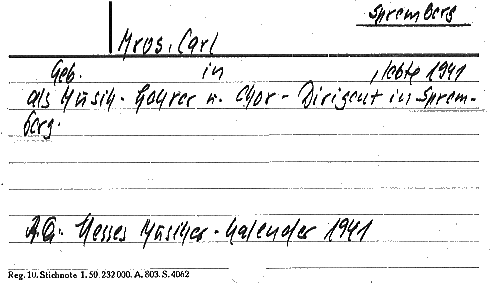 Spremberg
Mros, Carl
Geb. in , lebte 1941
als Musik-Lehrer u. Chor-Dirigent in Sprem-
berg.
A.Q. Hesses Musiker-Kalender 1941
Reg. 10. Stichnote 1. 50. 232000. A. 803. S. 4062